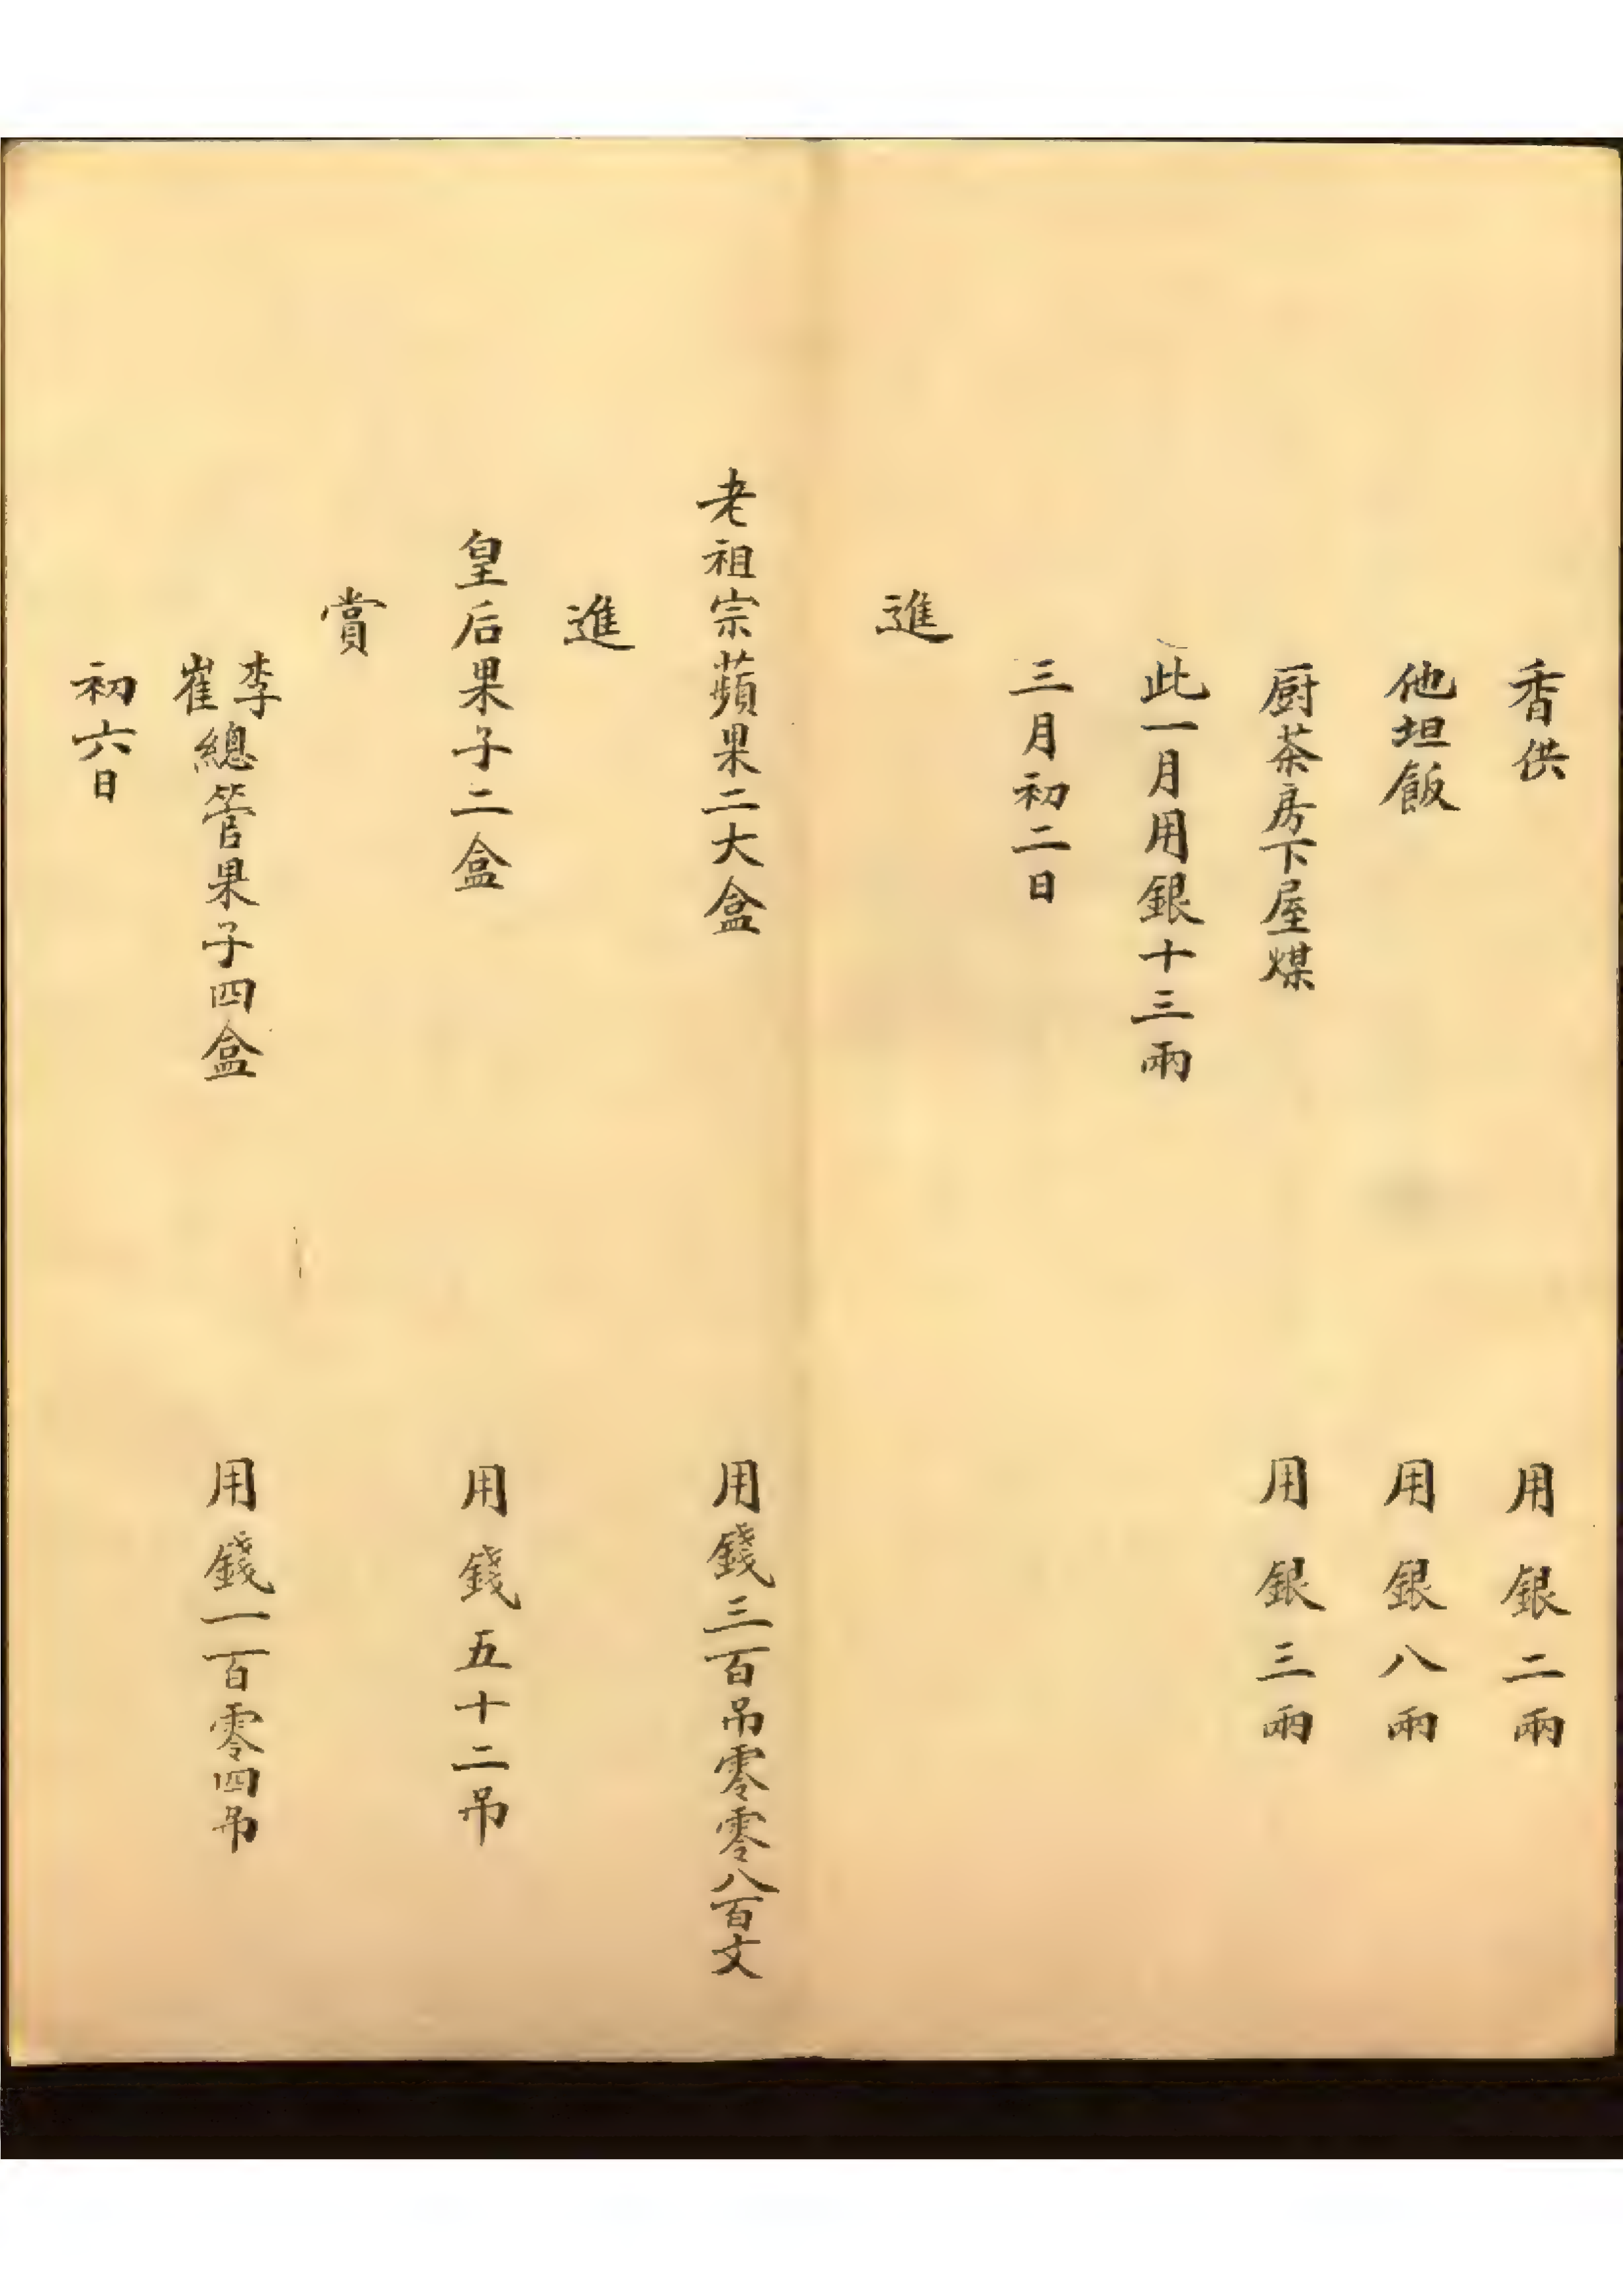 香供 用銀二兩
他坦飯 用銀八兩
厨茶房下屋煤 用銀三兩
此一月用銀十三兩
三月初二日
進
老祖宗蘋果二大盒 用錢三百吊零零八百文
進
皇后果子二盒 用錢五十二吊
賞
李崔總管果子四盒 用錢一百零四吊
初六日